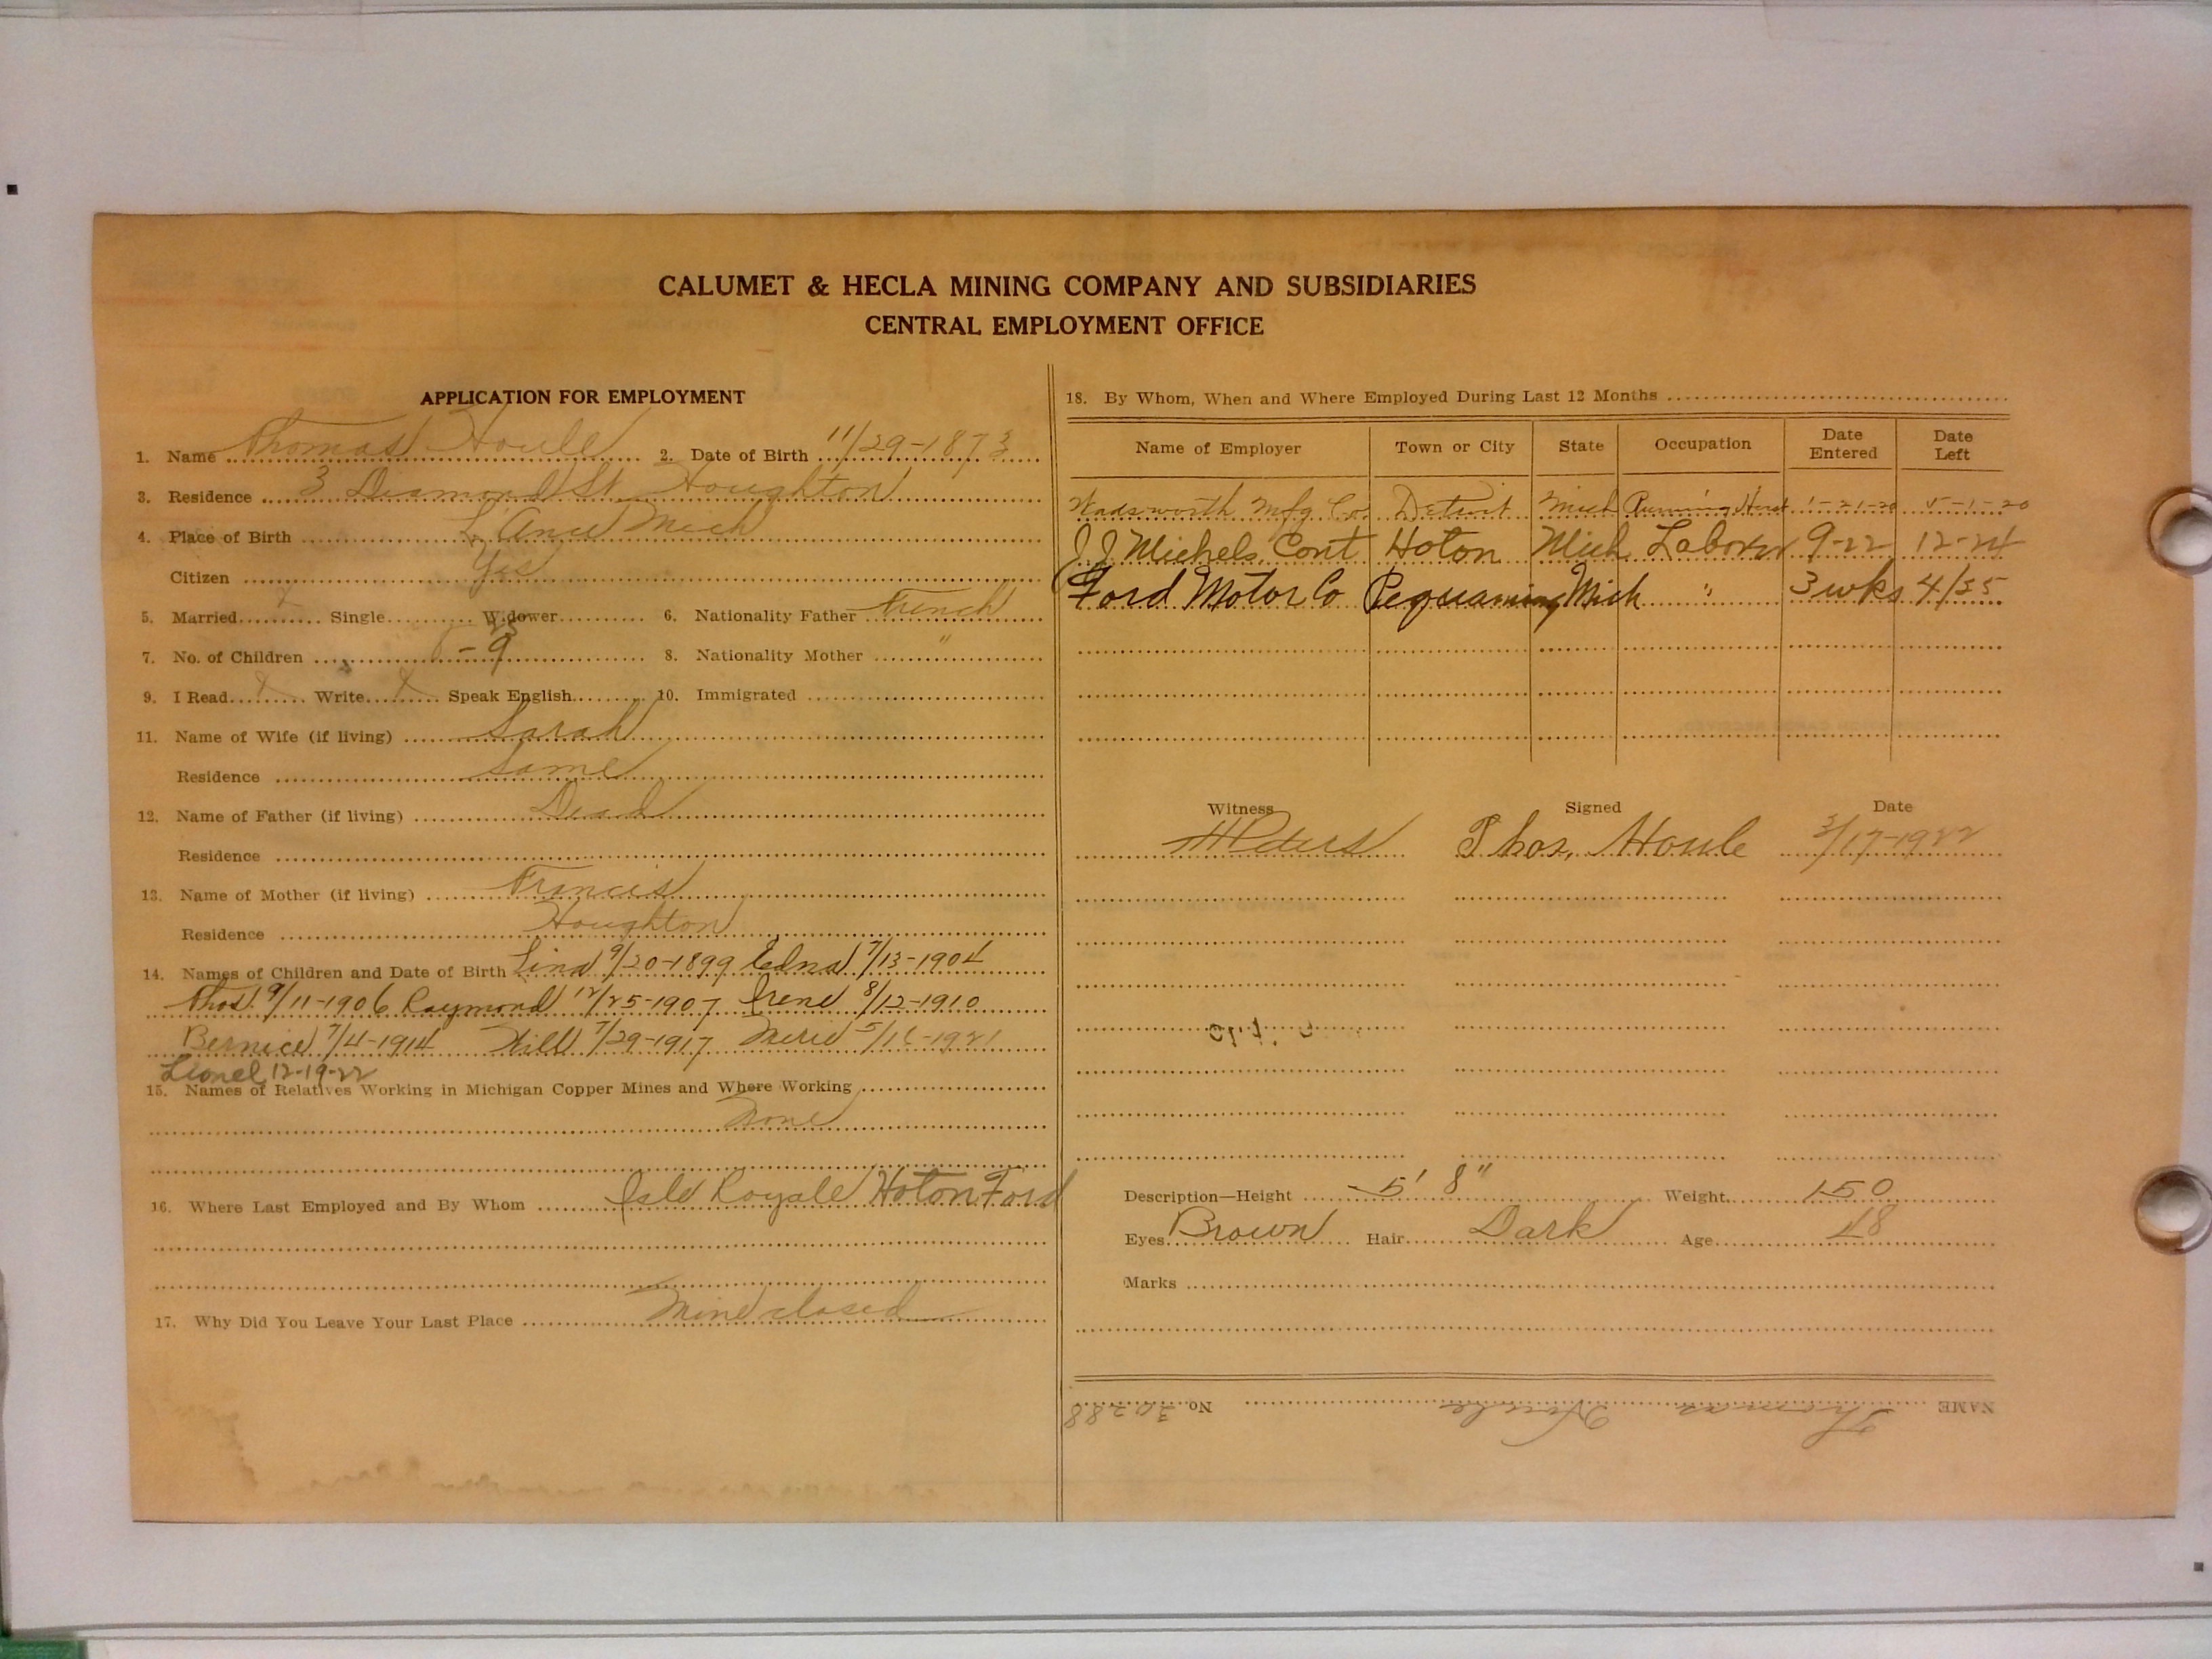 CALUMET & HECLA MINING COMPANY AND SUBSIDIARIES
CENTRAL EMPLOYMENT OFFICE
APPLICATION FOR EMPLOYMENT
1. Name Thomas Houle 2. Date of Birth 11/29-1873
3. Residence 3 Diamond St. Houghton
4. Place of Birth L'Anse Mich
Citizen Yes
5. Married x Single Widower 6. Nationality Father French
7. No. of Children 9 8. Nationality Mother "
9. I Read x Write x Speak English 10. Immigrated
11. Name of Wife (if living) Sarah
Residence Same
12. Name of Father (if living) Dead
Residence
13. Name of Mother (if living) Francis
Residence Houghton
14. Names of Children and Date of Birth Lina 9/20-1899 Edna 7/13-1904
Thos. 9/11-1906 Raymond 12/25-1907 Irene 8/12-1910
Bernice 7/4-1914 Will 7/29-1917 5/16-1921
Lionel 12-19-22
15. Names of Relatives Working in Michigan Copper Mines and Where Working
None
16. Where Last Employed and By Whom Isle Royale Hoton Ford
17. Why Did You Leave Your Last Place Mine closed
18. By Whom, When and Where Employed During Last 12 Months
Name of Employer Town or City State Occupation Date Entered Date Left
Wadsworth Mfg Co. Detroit Mich 1-21-20 5-1-20
J.J. Michels, Cont Hoton Mich Laborer 9-22 12-24
Ford Motor Co Pequaming Mich " 3 wks 4/25
Witness Signed Date
H Peters Thos. Houle 3/17-1922
Description—Height 5' 8" Weight 150
Eyes Brown Hair Dark Age 48
Marks
NAME Thomas Houle No. 30288